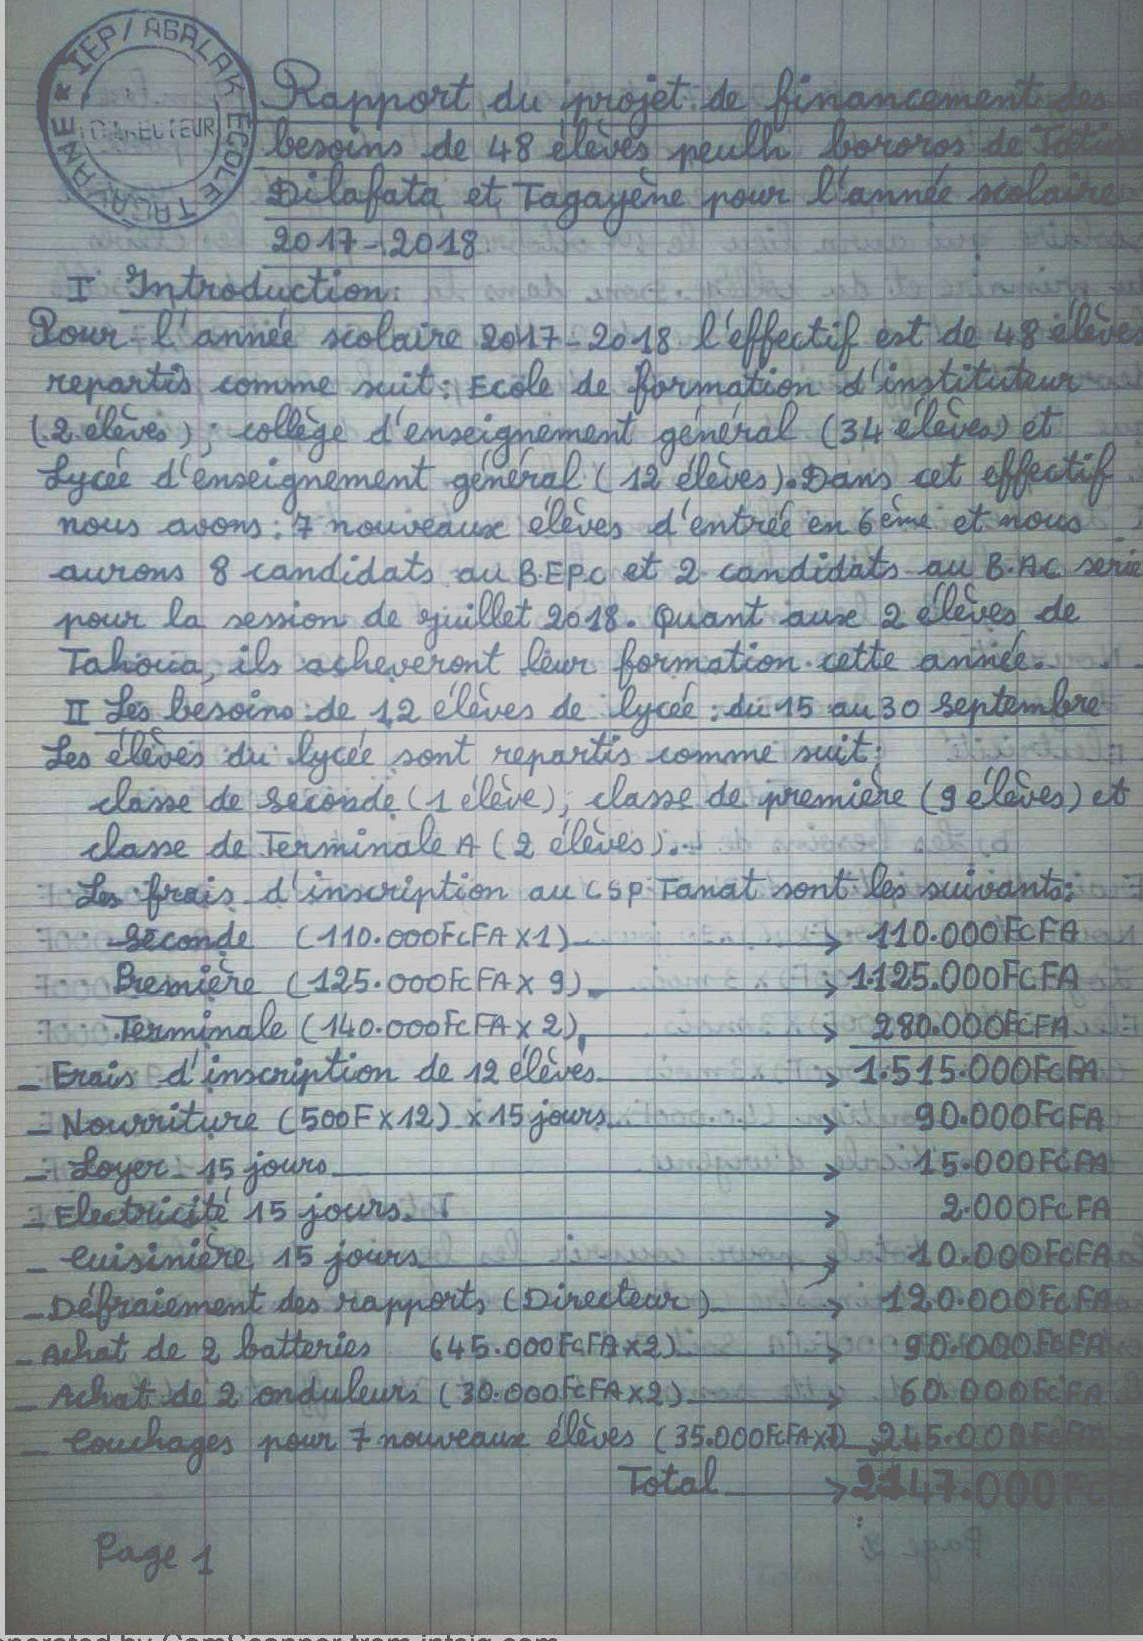 IEP / AGALAK ECOLE TAGALVANE *
DIRECTEUR
Rapport du projet de financement des
besoins de 48 élèves peulh bororos de
Dilafata et Tagayène pour l'année scolaire
2017-2018
I Introduction:
Pour l'année scolaire 2017-2018 l'effectif est de 48 élèves
repartis comme suit: Ecole de formation d'instituteur
(2 élèves); collège d'enseignement général (34 élèves) et
Lycée d'enseignement général (12 élèves). Dans cet effectif
nous avons: 7 nouveaux élèves d'entrée en 6ème et nous
aurons 8 candidats au B.E.P.C et 2 candidats au B.AC serie
pour la session de juillet 2018. Quant aux 2 élèves de
Tahoua, ils acheveront leur formation cette année.
II Les besoins de 12 élèves de lycée: du 15 au 30 septembre
Les élèves du lycée sont repartis comme suit:
classe de seconde (1 élève); classe de première (9 élèves) et
classe de Terminale A (2 élèves).
Les frais d'inscription au CSP Tanat sont les suivants:
Seconde (110.000FCFA X1) → 110.000FCFA
Première (125.000FCFA X 9) → 1.125.000FCFA
Terminale (140.000FCFA X 2) → 280.000FCFA
- Frais d'inscription de 12 élèves → 1.515.000FCFA
- Nourriture (500F X 12) X 15 jours → 90.000FCFA
- Loyer 15 jours → 15.000FCFA
- Electricité 15 jours → 2.000FCFA
- Cuisinière 15 jours → 10.000FCFA
- Défraiement des rapports (Directeur) → 120.000FCFA
- Achat de 2 batteries (45.000FCFA X2) → 90.000FCFA
- Achat de 2 onduleurs (30.000FCFA X2) → 60.000FCFA
- Couchages pour 7 nouveaux élèves (35.000FCFA X7) → 245.000FCFA
Total → 2147.000FCFA
Page 1